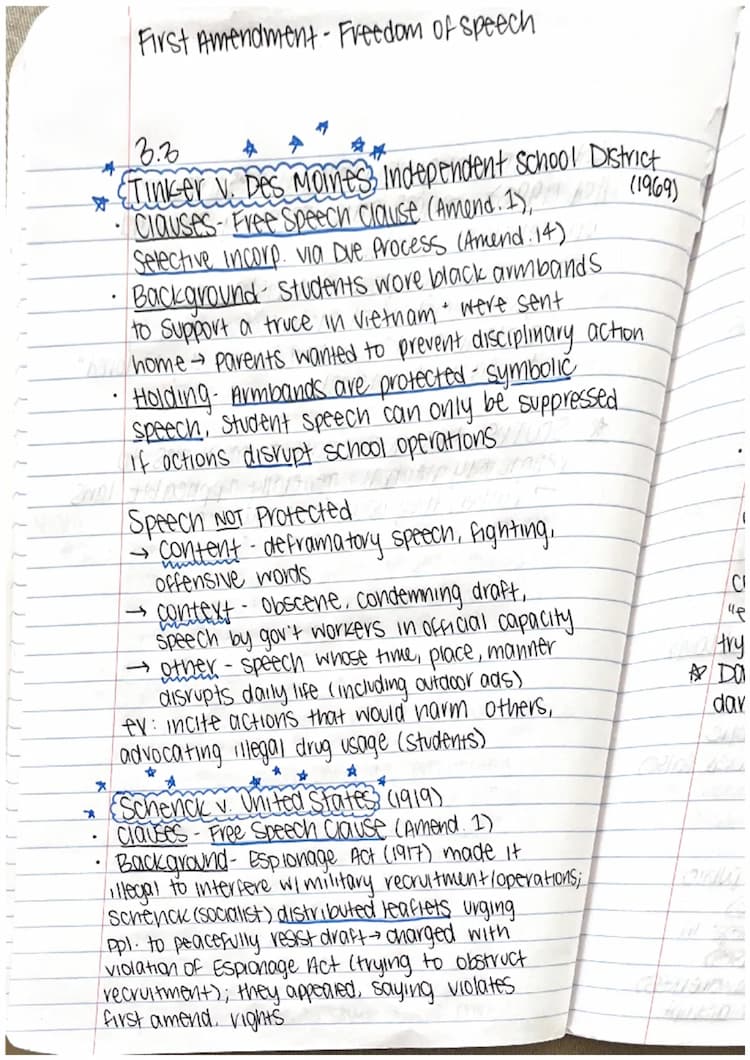 First Amendment - Freedom of Speech
3.3
Tinker v. Des Moines Independent School District
(1969)
• Clauses - Free Speech Clause (Amend. 1),
Selective incorp. via Due Process (Amend. 14)
• Background - students wore black armbands
to support a truce in Vietnam + were sent
home → parents wanted to prevent disciplinary action
• Holding - Armbands are protected - symbolic
speech, student speech can only be suppressed
if actions disrupt school operations
Speech NOT Protected
→ content - deframatory speech, fighting,
offensive words
→ context - obscene, condemning draft,
speech by gov't workers in official capacity
→ other - speech whose time, place, manner
disrupts daily life (including outdoor ads)
ex: incite actions that would harm others,
advocating illegal drug usage (students)
Schenck v. United States (1919)
• Clauses - Free Speech Clause (Amend. 1)
• Background - Espionage Act (1917) made it
illegal to interfere w/ military recruitment/operations;
Schenck (socialist) distributed leaflets urging
ppl. to peacefully resist draft → charged with
violation of Espionage Act (trying to obstruct
recruitment); they appeared, saying violates
first amend. rights
try